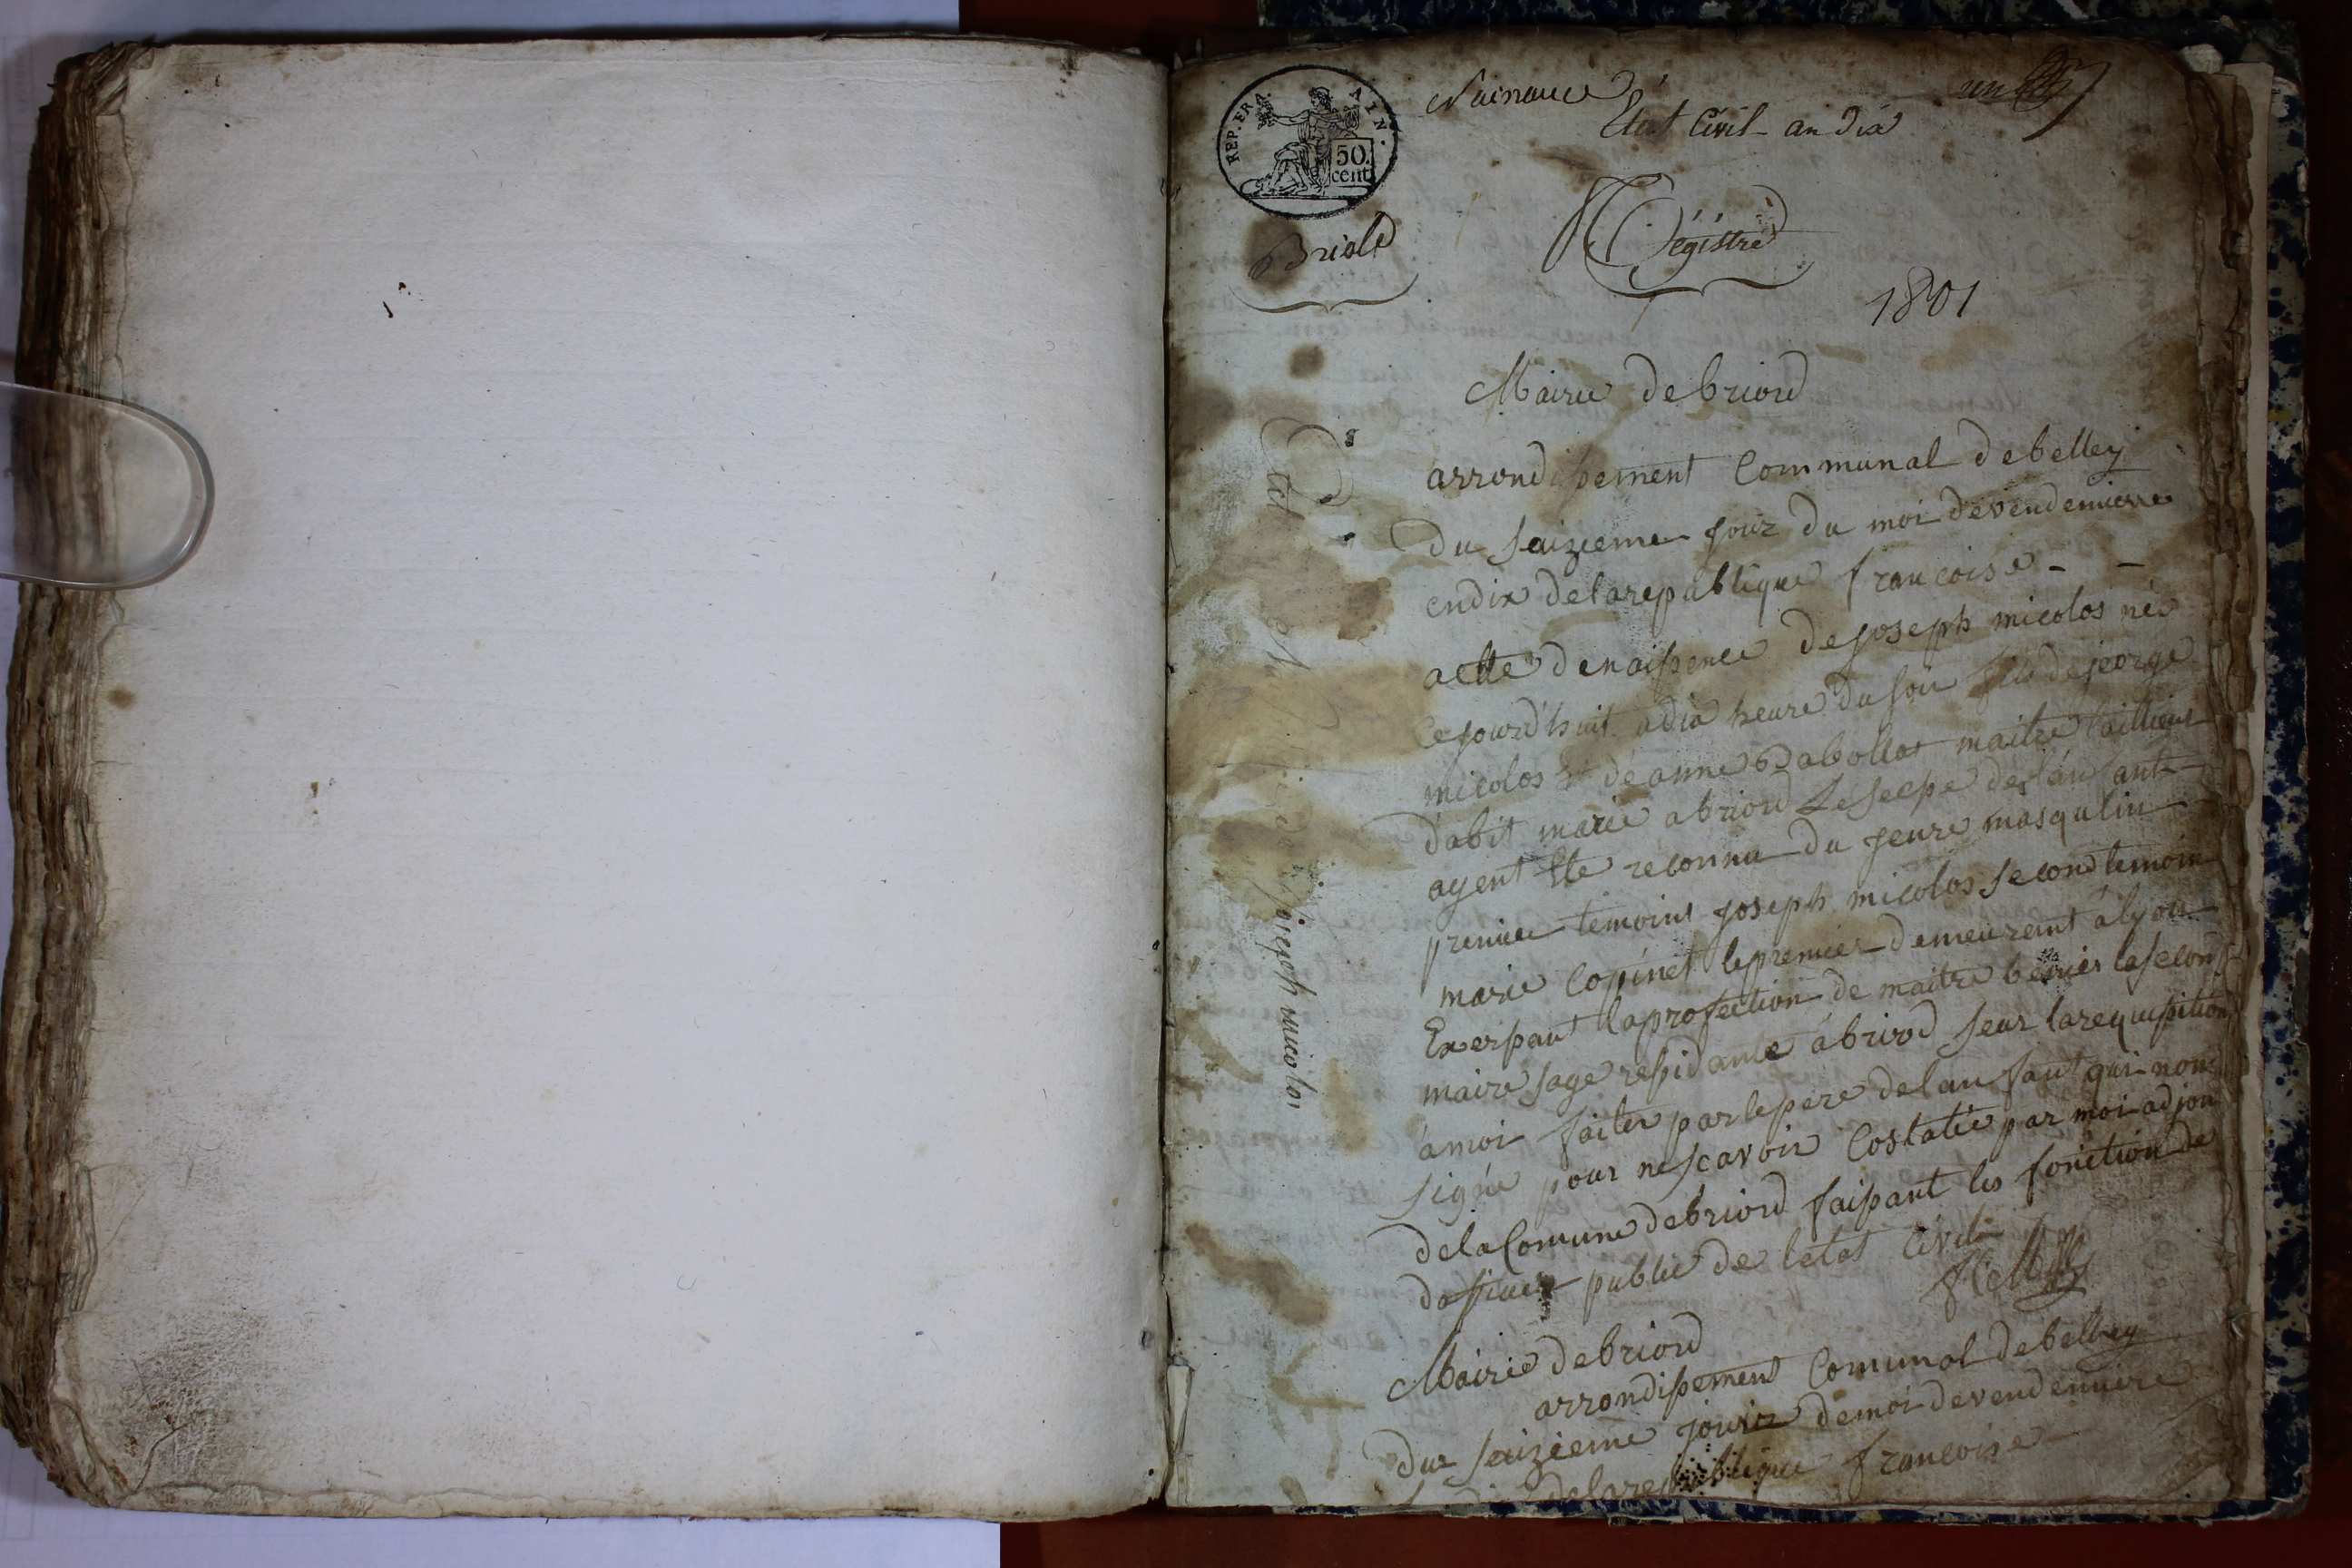 REP. FRA. AIN.
50.
cent
Naissance
Etat Civil an Dix
un
Briord
Régistre
1801
Mairie de briord
arrondissement Communal de belley
Du Saizieme jour du moi de vendemierre
en dix de la republique francoise - -
acte de naissence de joseph micolos né
Ce jourd'huit a dix heure du soir fils de jeorge
micolos et de anne Babollat maitre taillieur
d'abit marié a briord Le secxe de lanfant
ayent Ete reconnu du jenre masqulin
premier temoins joseph micolos second temoin
marie Copinet le premier demeurent a lyon
Exersant la profection de maitre la second
maire sage residante a briord seur la requisition
a moi faites par le pere de lanfant qui non
signé pour ne scavoir Costatée par moi adjoin
de la Comune de briord faisant les fonction de
dofficier public de letat Civil
Mairie de briord
arrondissement Comunal de belley
Due Saizieme jourir de moi de vendemiere
de la republique francoise
joseph micolos